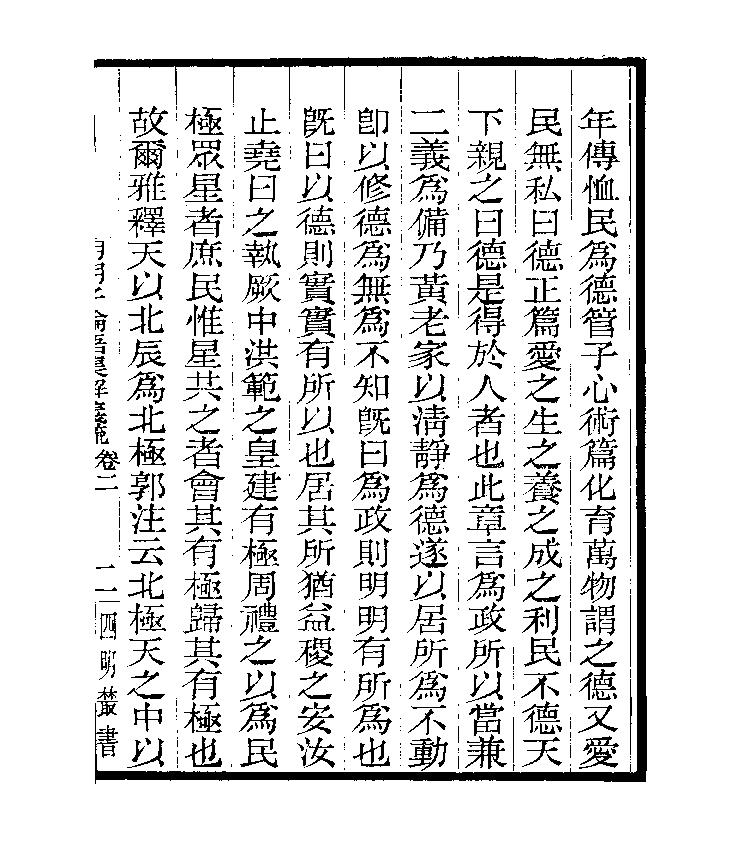 年傳恤民爲德管子心術篇化育萬物謂之德又愛
民無私曰德正篇愛之生之養之成之利民不德天
下親之曰德是得於人者也此章言爲政所以當兼
二義爲備乃黃老家以淸靜爲德遂以居所爲不動
卽以修德爲無爲不知旣曰爲政則明明有所爲也
旣曰以德則實實有所以也居其所猶益稷之安汝
止堯曰之執厥中洪範之皇建有極周禮之以爲民
極眾星者庶民惟星共之者會其有極歸其有極也
故爾雅釋天以北辰爲北極郭注云北極天之中以
論語集解義疏 卷二 二 四明叢書